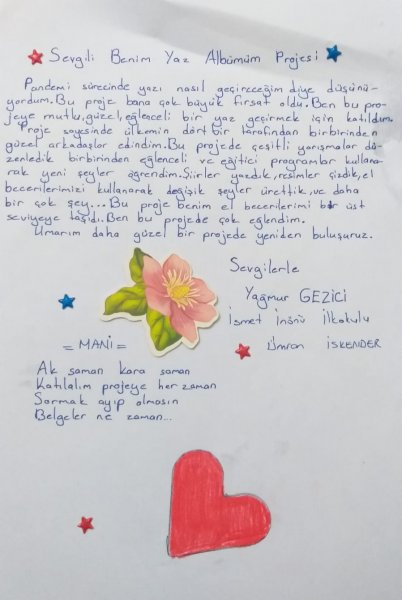 Sevgili Benim Yaz Albümüm Projesi
Pandemi sürecinde yazı nasıl geçireceğim diye düşünü-
yordum. Bu proje bana çok büyük fırsat oldu. Ben bu pro-
jeye mutlu, güzel, eğlenceli bir yaz geçirmek için katıldım.
Proje sayesinde ülkemin dört bir tarafından birbirinden
güzel arkadaşlar edindim. Bu projede çeşitli yarışmalar dü-
zenledik birbirinden eğlenceli ve eğitici programlar kullana-
rak yeni şeyler öğrendim. Şiirler yazdık, resimler çizdik, el
becerilerimizi kullanarak değişik şeyler ürettik, ve daha
bir çok şey... Bu proje benim el becerilerimi bir üst
seviyeye taşıdı. Ben bu projede çok eğlendim.
Umarım daha güzel bir projede yeniden buluşuruz.
Sevgilerle
Yağmur GEZİCİ
İsmet İnönü İlkokulu
Ümran İSKENDER
= MANİ =
Ak saman kara saman
Katılalım projeye her zaman
Sormak ayıp olmasın
Belgeler ne zaman...